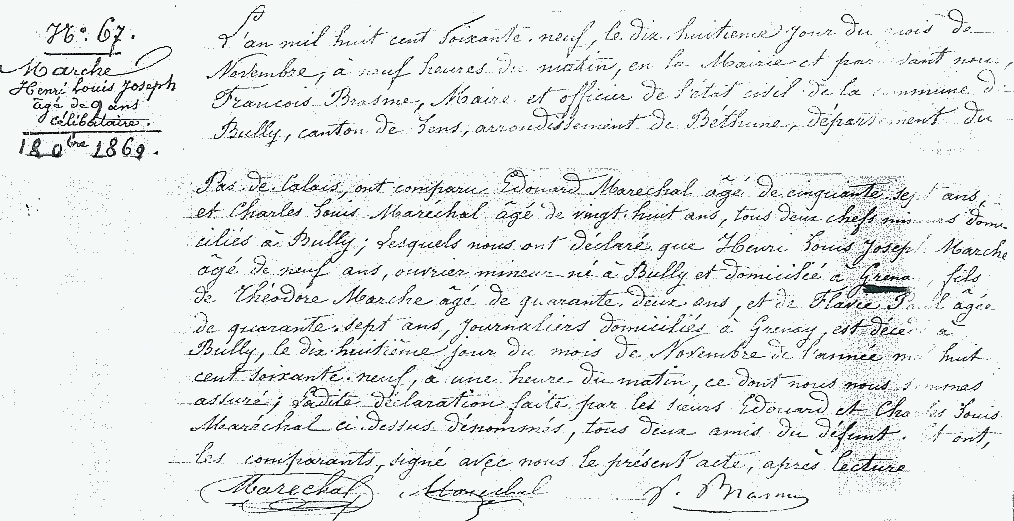 N.º 67.
Marche
Henri Louis Joseph
âgé de 9 ans
célibataire.
18 9bre 1869.
L'an mil huit cent soixante-neuf, le dix-huitième jour du mois de
Novembre, à neuf heures du matin, en la Mairie et par nous,
François Brasme, Maire et officier de l'état civil de la commune de
Bully, canton de Lens, arrondissement de Béthune, département du
Pas-de-Calais, ont comparu Edouard Maréchal âgé de cinquante sept ans,
et Charles Louis Maréchal âgé de vingt-huit ans, tous deux chefs mineurs domi-
ciliés à Bully; lesquels nous ont déclaré que Henri Louis Joseph Marche
âgé de neuf ans, ouvrier mineur né à Bully et domicilié à Grenay, fils
de Théodore Marche âgé de quarante-deux ans, et de Flavie âgée
de quarante-sept ans, journaliers domiciliés à Grenay, est décédé à
Bully, le dix-huitième jour du mois de Novembre de l'année mil huit
cent soixante-neuf, à une heure du matin, ce dont nous nous sommes
assuré; Ladite déclaration faite par les sieurs Edouard et Charles Louis
Maréchal ci-dessus dénommés, tous deux amis du défunt. Et ont,
les comparants, signé avec nous le présent acte, après lecture
Maréchal Maréchal F. Brasme